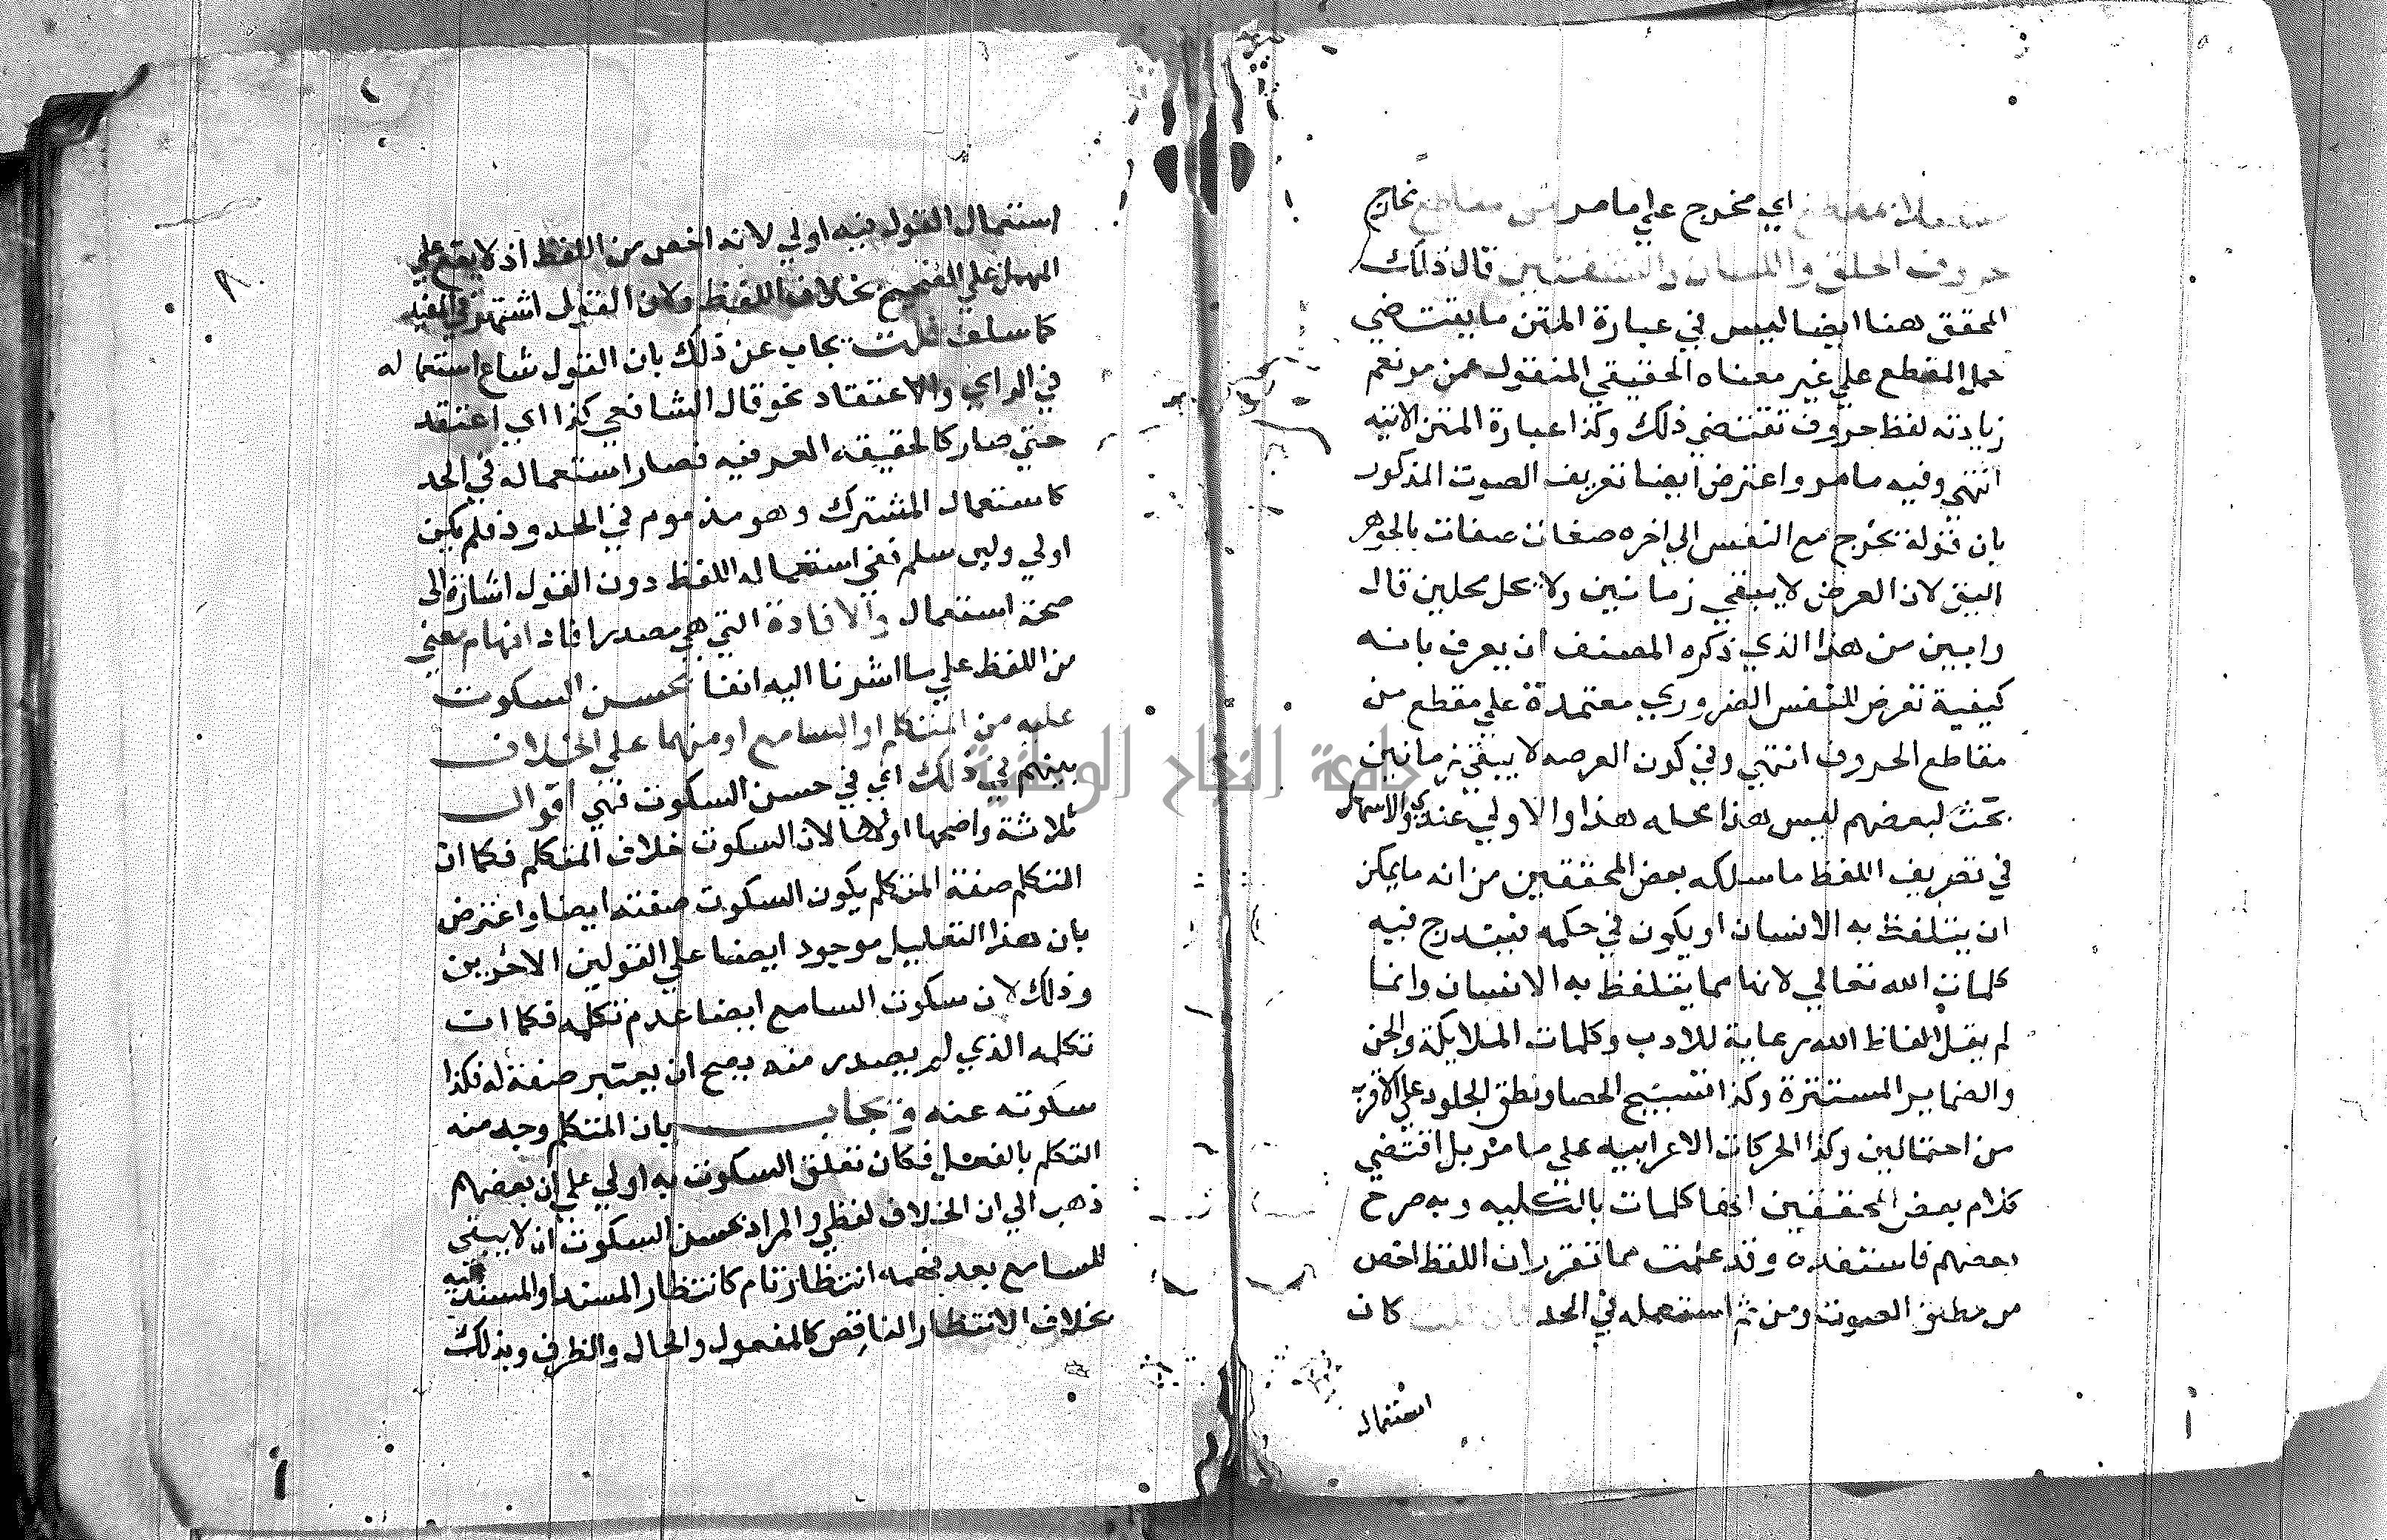 اي مخرج علي مامر من مقاطع مخارج
حروف الحلق واللسان والشفتين قال ذلك
المحقق هنا ايضا ليس في عبارة المتن ما يقتضي
حمل المقطع علي غير معناه الحقيقي المنقول عمن مر نعم
زيادته لفظ حروف تقتضي ذلك وكذا عبارة المتن الاتيه
انتهي وفيه ما مر واعترض ايضا تعريف الصوت المذكور
بان قوله تخرج مع النفس الي اخره صفات بالجوهر
اليق لان العرض لا يبقي زمانين ولا يحل محلين قال
وابين من هذا الذي ذكره المصنف ان يعرف بانه
كيفية تعرض للنفس الضروري معتمدة علي مقطع من
مقاطع الحروف انتهي وفي كون العرض لا يبقي زمانين
بحث لبعضهم ليس هذا محله هذا والاولي عندي والاسهل
في تعريف اللفظ ما سلكه بعض المحققين من انه ما يمكن
ان يتلفظ به الانسان او يكون في حكمه فيندرج فيه
كلمات الله تعالي لانها مما يتلفظ به الانسان وانما
لم يقل الفاظ الله رعاية للادب وكلمات الملايكة والجن
والضماير المستترة وكذا تسبيح الحصا ونطق الجلود علي الاقرب
من احتمالين وكذا الحركات الاعرابيه علي ما مر بل اقتضي
كلام بعض المحققين انها كلمات بالكليه وبه صرح
بعضهم فاستفده وقد علمت مما تقرر ان اللفظ اخص
من مطلق الصوت ومن ثم استعمله في الحد فان قلت كان
استعمال
استعمال القول فيه اولي لانه اخص من اللفظ اذ لا يقع علي
المهمل علي الصحيح بخلاف اللفظ ولان القول اشتهر في المفيد
كما سلف قلت يجاب عن ذلك بان القول شاع استعماله
في الراي والاعتقاد نحو قال الشافعي كذا اي اعتقد
حتي صار كالحقيقه العرفيه فصار استعماله في الحد
كاستعمال المشترك وهو مذموم في الحدود فلم يكن
اولي ولين سلم ففي استعماله اللفظ دون القول اشارة الي
صحة استعمال والافادة التي هي مصدر افاد افهام معني
من اللفظ علي ما اشرنا اليه انفا يحسن السكوت
عليه من المتكلم او السامع او منهما علي الخلاف
بينهم في ذلك اي في حسن السكوت فهي اقوال
ثلاثة واصحها اولها لان السكوت خلاف التكلم فكما ان
التكلم صفة المتكلم يكون السكوت صفته ايضا واعترض
بان هذا التعليل موجود ايضا علي القولين الاخرين
وذلك لان سكوت السامع ايضا عدم تكلمه فكما ان
تكلمه الذي لم يصدر منه يصح ان يعتبر صفة له فكذا
سكوته عنه ويجاب بان المتكلم وجد منه
التكلم بالفعل فكان تعلق السكوت به اولي علي ان بعضهم
ذهب الي ان الخلاف لفظي والمراد بحسن السكوت ان لا يبقي
للسامع بعد فهمه انتظار تام كانتظار المسند او المسند اليه
بخلاف الانتظار الناقص كالمفعول والحال والظرف وبذلك
٨
جامعة النجاح الوطنية